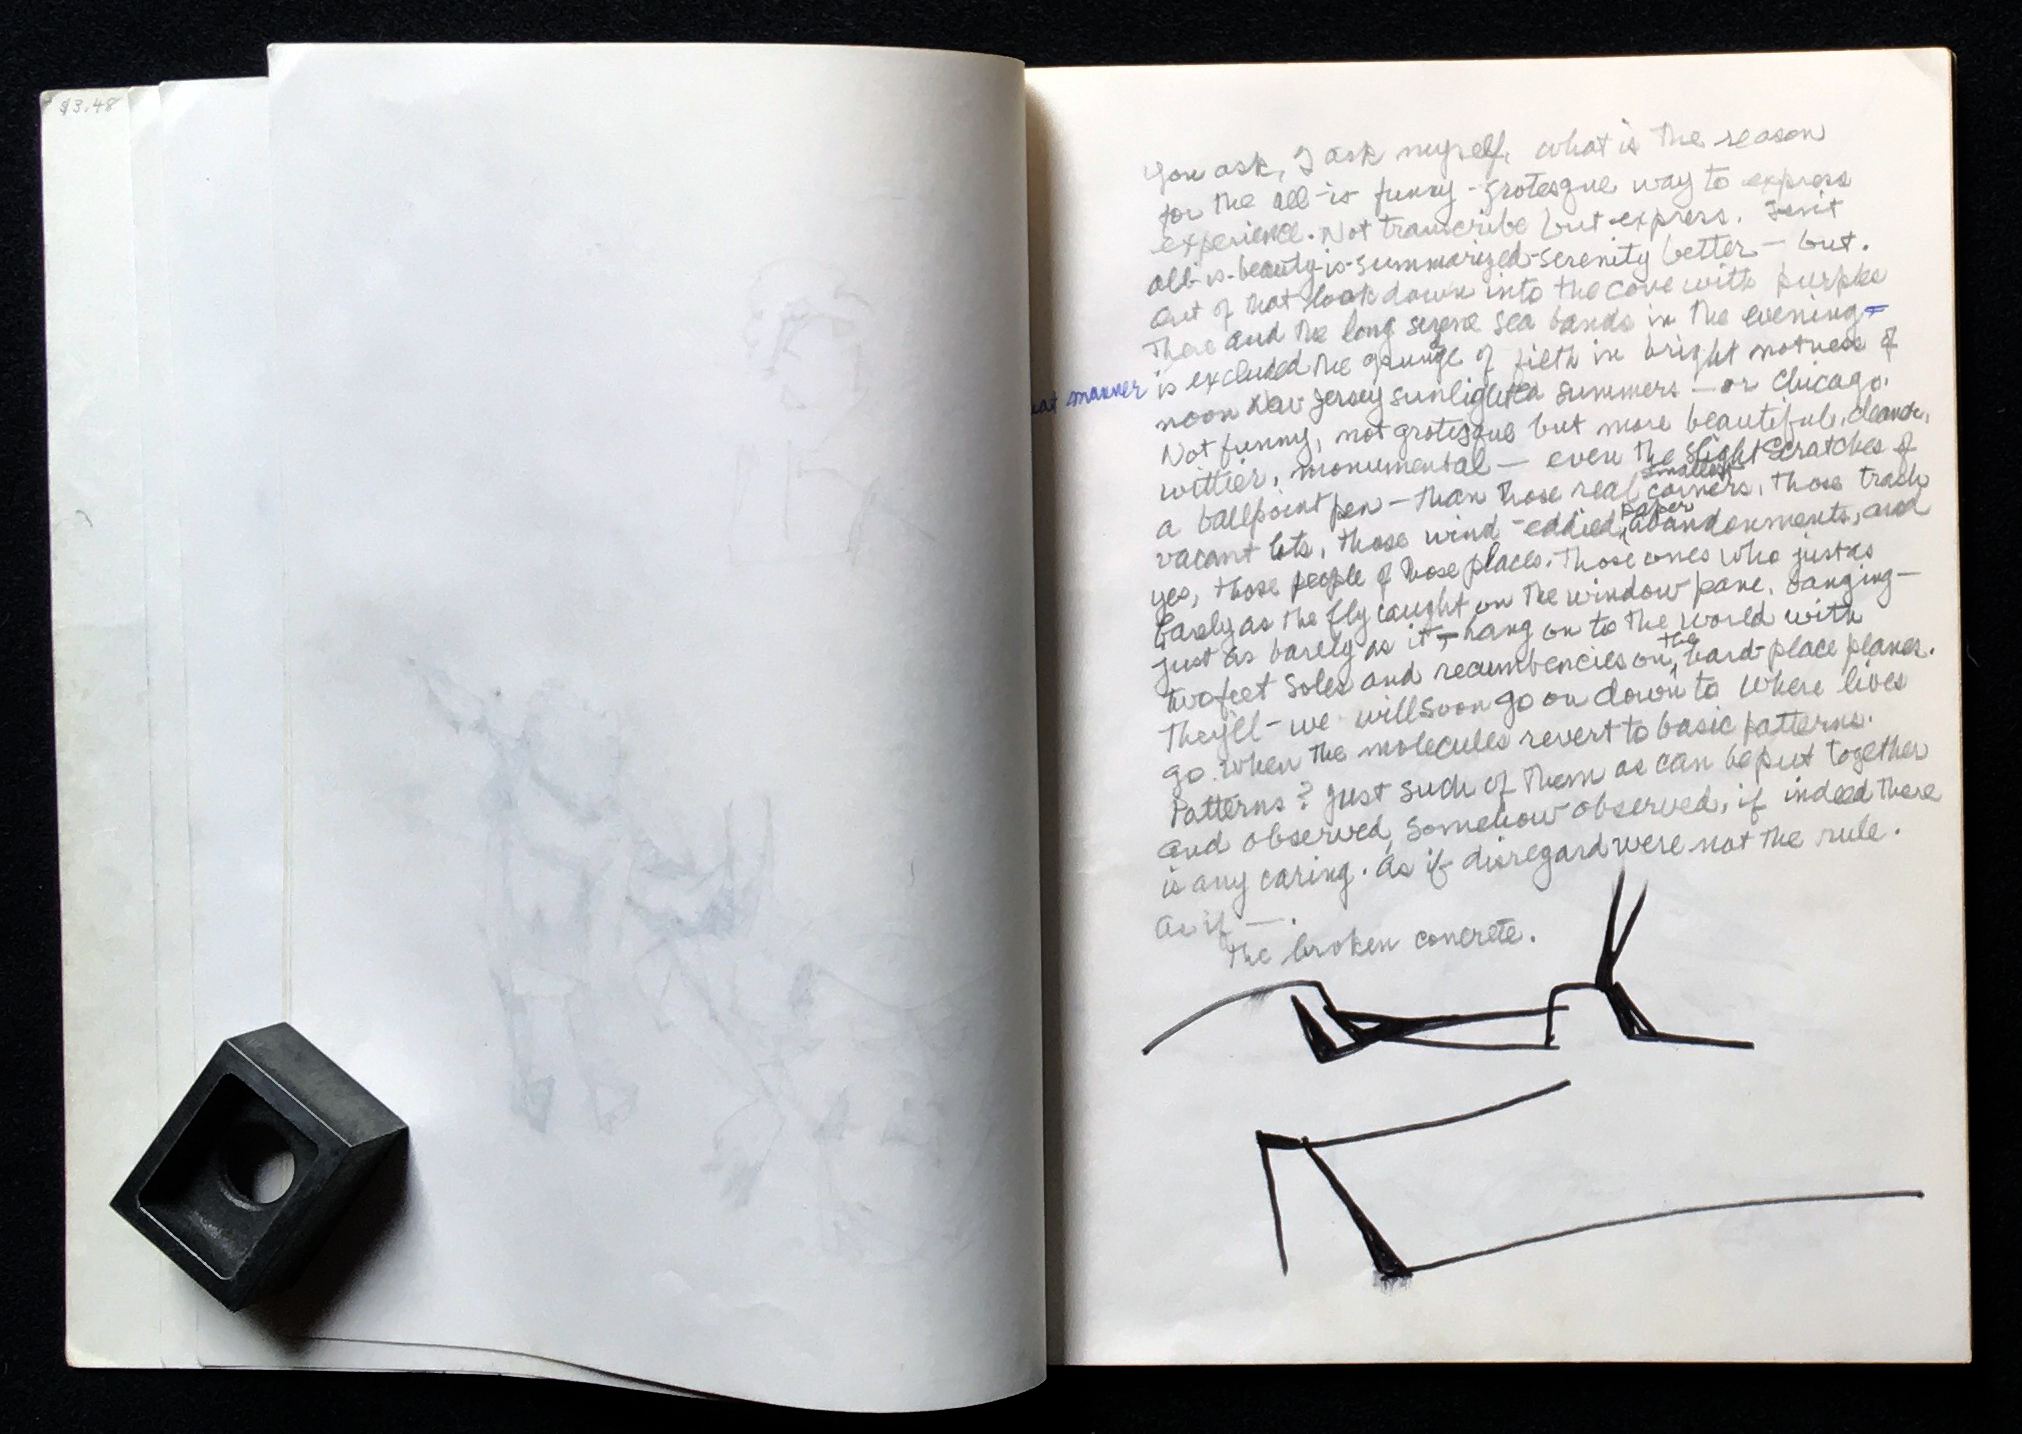 $3.48
You ask, I ask myself, what is the reason
for the all-is funny-grotesque way to express
experience. Not transcribe but express. Isn't
all-is-beauty-is-summarized-serenity better — but.
Out of that look down into the cove with purples
There and the long serene sea bands in the evening -
manner is excluded the grunge of filth in bright hotness of
noon New Jersey sunlighted summers — or Chicago.
Not funny, not grotesque but more beautiful, cleaner,
wittier, monumental — even the slight scratches of
a ballpoint pen — than those real smallest corners, those trash
vacant lots, those wind-eddied, paper abandonments, and
yes, those people of those places. Those ones who just as
barely as the fly caught on the window pane, banging —
just as barely as it, — hang on to the world with
two feet soles and recumbencies on the hard-place planes.
They'll - we will soon go on down to where lives
go when the molecules revert to basic patterns.
Patterns? Just such of them as can be put together
and observed, somehow observed, if indeed there
is any caring. As if disregard were not the rule.
As if — .
The broken concrete.